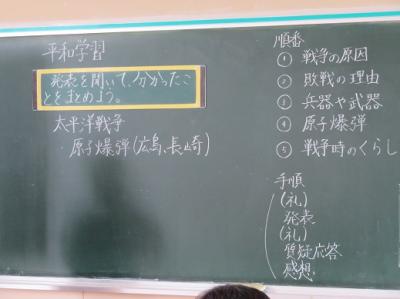 平和学習
発表を聞いて、分かったこ
とをまとめよう。
太平洋戦争
・原子爆弾(広島、長崎)
順番
① 戦争の原因
② 敗戦の理由
③ 兵器や武器
④ 原子爆弾
⑤ 戦争時のくらし
手順
(礼)
発表
(礼)
質疑応答
感想